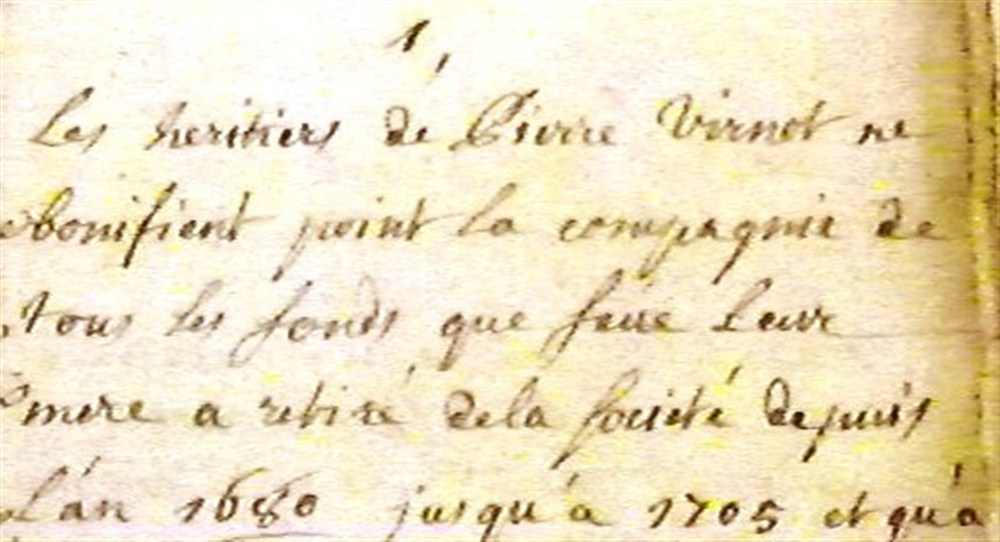 1,
Les heritiers de Pierre Virnot ne
bonifient point la compagnie de
tous les fonds que feüe Leur
mere a retiré de la societé depuis
L'an 1680 jusqu'a 1705 et qu'a